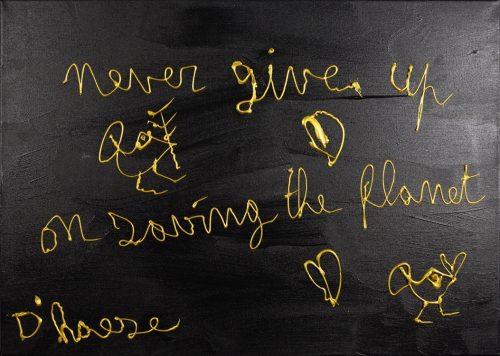 never give up
on saving the planet
D'haese